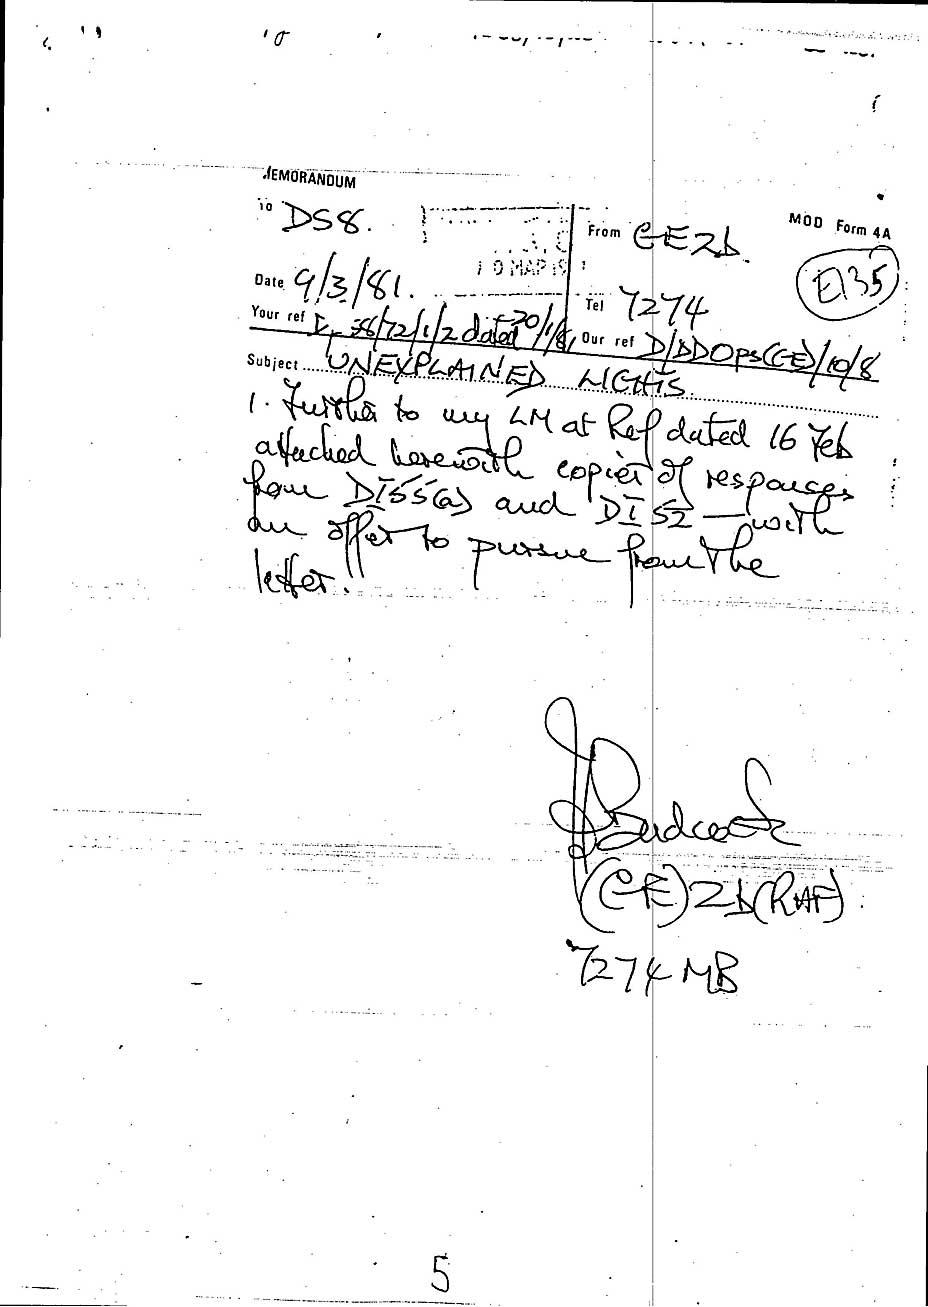 MEMORANDUM
To DS8.
From GE2b.
MOD Form 4A
E135
10 MAR 19
Date 9/3/81.
Tel 7274
Your ref 38/72/1/2 dated 20/1/81
Our ref D/DDOPS(GE)/10/8
Subject UNEXPLAINED LIGHTS.
1. Further to my LM at Ref dated 16 Feb
attached herewith copies of responses
from DI55(a) and DI 52 — with
an offer to pursue from the
latter.
(GE)2b(RAF)
7274 MB
5